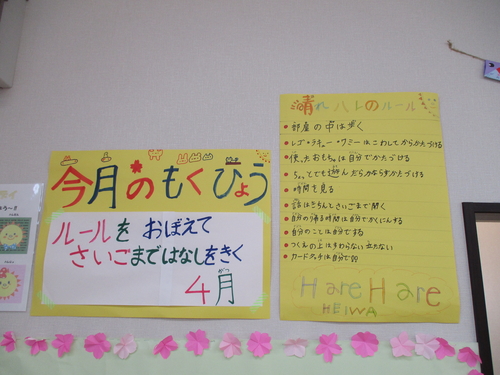 今月のもくひょう
ルールを おぼえて
さいごまではなしをきく
4月
晴れハレのルール
部屋の中は歩く
使ったおもちゃは自分でかたづける
ちょっとでも遊んだらかならずかたづける
時間を見る
話はきちんとさいごまで聞く
自分の帰る時間は自分でかくにんする
自分のことは自分でする
つくえの上はすわらない 立たない
カードタッチは自分で
Hare Hare
HEIWA